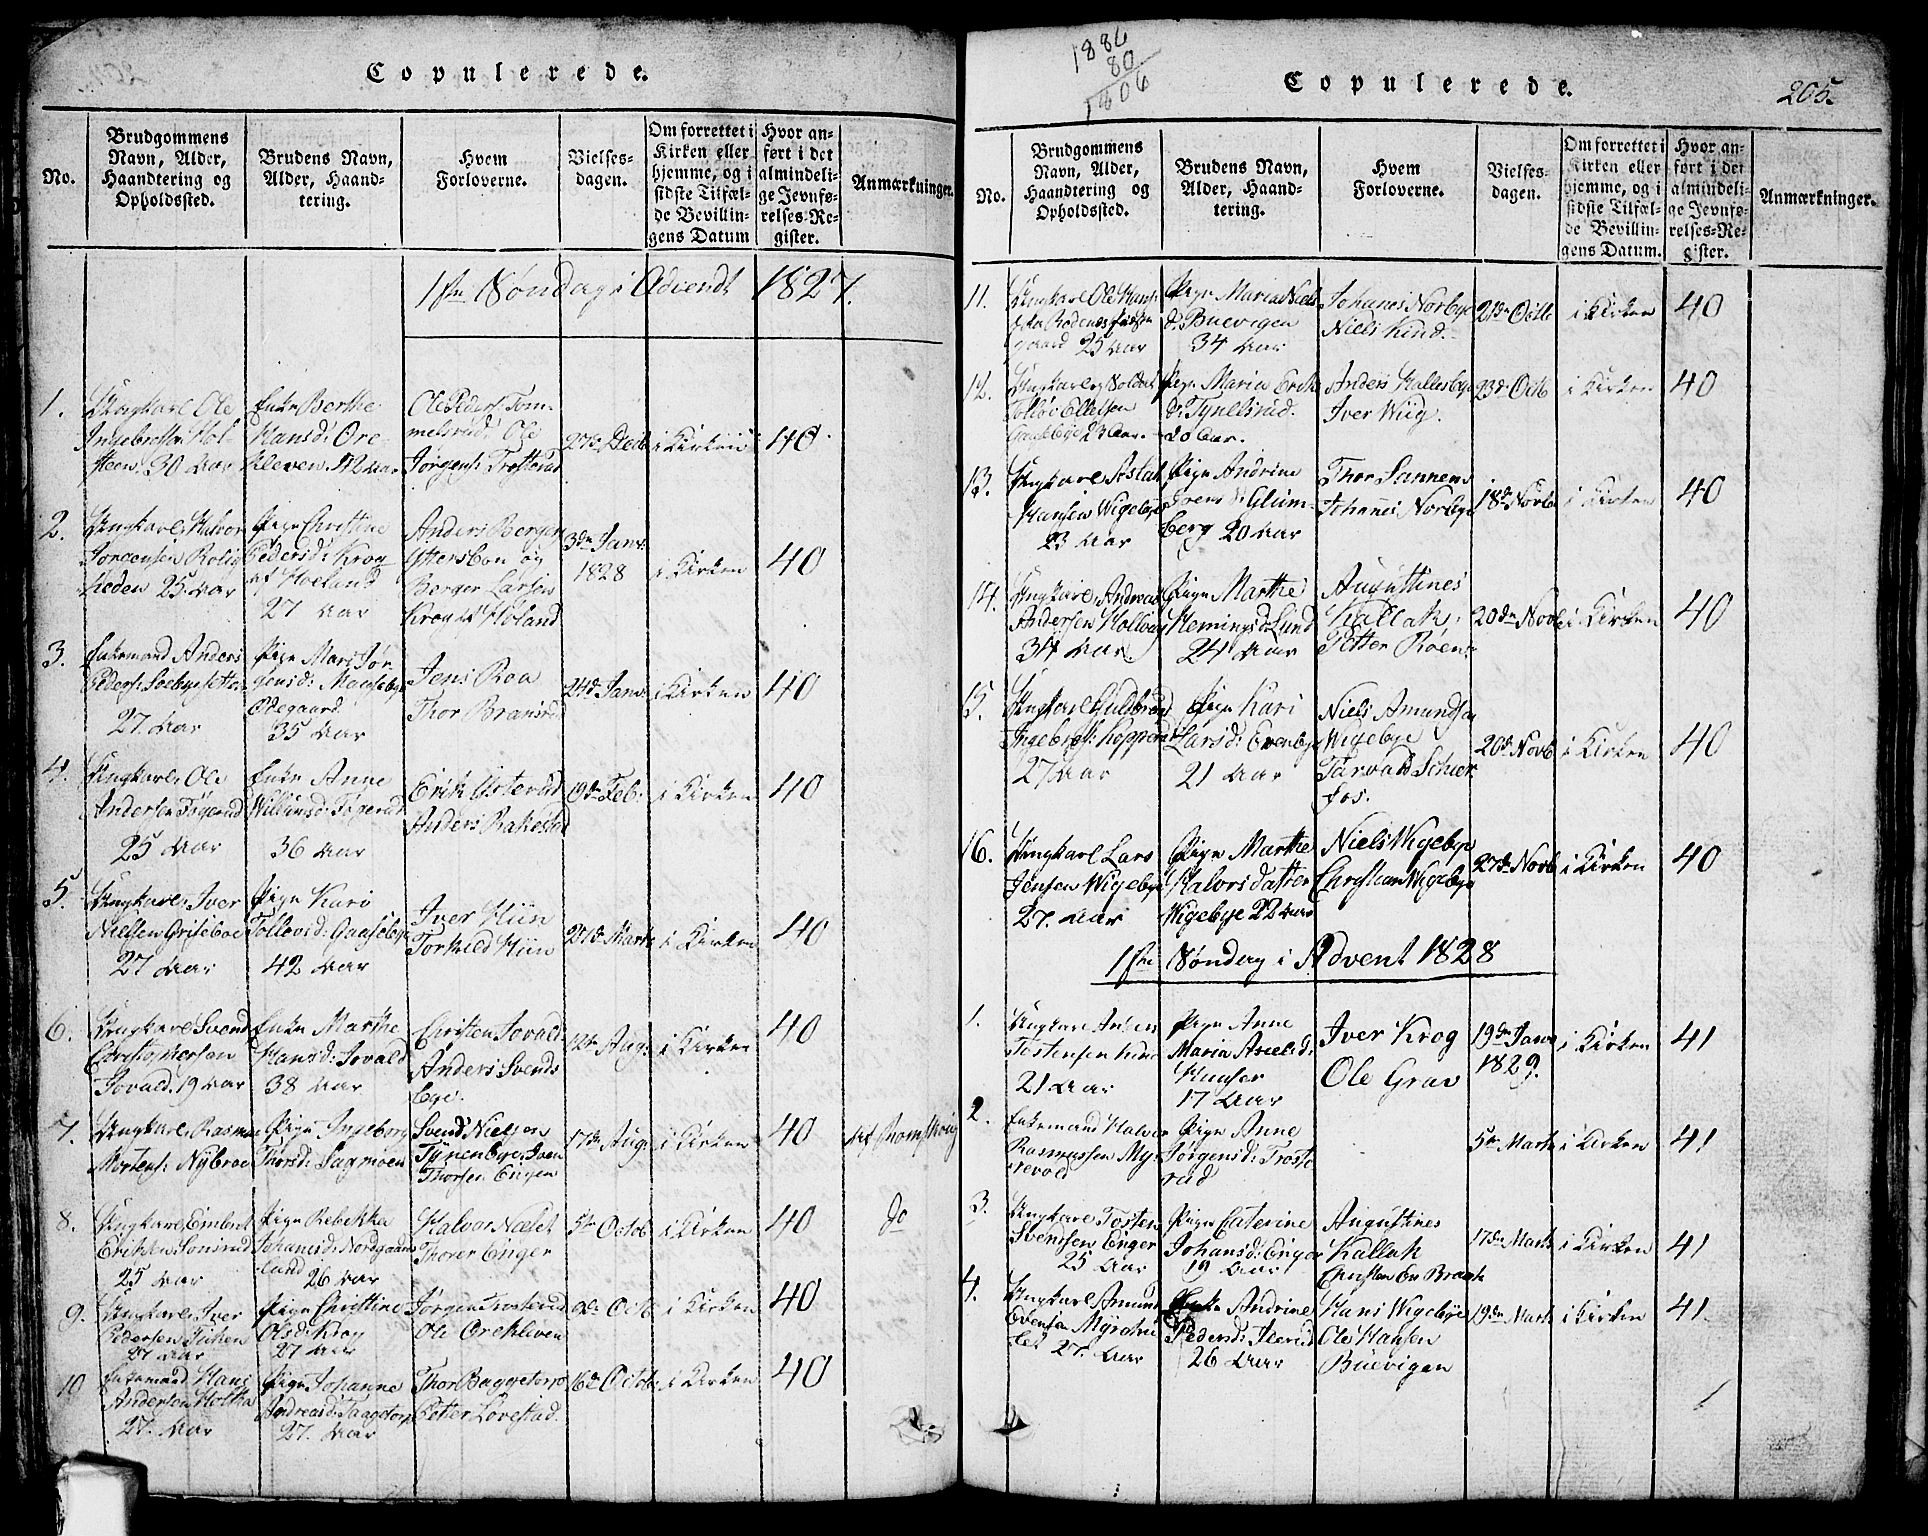 Copulerede.
No.
Brudgommens
Navn, Alder,
Haandtering og
Opholdssted.
Brudens Navn,
Alder, Haand-
tering.
Hvem
Forloverne.
Vielses-
dagen.
Om forrettet i
Kirken eller
hjemme, og i
sidste Tilfæl-
de Bevillin-
gens Datum
Hvor an-
ført i det
almindeli-
ge Jevnfø-
relses-Re-
gister.
Anmærkninger.
1ste Søndag i Advendt 1827.
1.
Ungkarl Ole
Ingebretsen Hol-
steen. 30 Aar
Enke Berthe
Hansd: Ore-
kleven
Ole Peders: Tom-
melsrud. Ole
Jørgens: Trosterud
27de Decb
i Kirken
40
2.
Ungkarl Halvor
Jørgensen Rolig-
heden 25 Aar
Pige Christine
Pedersd: Krog
af Hoeland
27 Aar
Anders Berger
Ytterskou og
Berger Larsen
Krog af Høland
3die Janr:
1828
i Kirken
40
3.
Enkemand Anders
Peders:
27 Aar
Pige Mari Jør-
gensd:
Ødegaard.
35 Aar
Jens Roa
Thor Bransrud
24de Janr:
i Kirken
40
4.
Ungkarl Ole
Andersen Togerud
25 Aar
Enke Anne
Willumsd: Togerud
36 Aar
Erik Usterud
Anders Rakestad
19de Feb:
i Kirken
40
5.
Ungkarl Iver
Nielsen Griseboe
27 Aar
Pige Karo
Tollevsd: Gaasebye
42 Aar
Iver Hiin
Torkild Hiin
Marts
i Kirken
40
6.
Ungkarl Svend
Christophersen
Sovald. 19 Aar
Enke Marthe
Hansd: Sovald
38 Aar
Christen Sovald
Anders Svends
bye.
12te Aug:
i Kirken
40
7.
Ungkarl Rasmus
Mortens: Nybroe
Pige Ingeborg
Thorsd: Sagmoen
Svend Nielsen
Tynenbye. Sven
Thorsen Engen
17de Aug:
i Kirken
40
8.
Ungkarl Embret
Eriksen Sonsrud
25 Aar
Pige Rebekka
Johansd: Nordgaarn
land 26 Aar
Halvor Næset
Thorer Enger
5te Octob
i Kirken
40
Do
9.
Ungkarl Iver
Pedersen
27 Aar
Pige Christine
Olsd: Krog
27 Aar
Jørgen Trosterud
Ole Orekleven
Octb
i Kirken
40
10
Enkemand Hans
Andersen Holtha
27. Aar
Pige Johanne
Andreasd: Taagetorp
27. Aar
Thor Baggetorp
Petter Lovestad.
16de Octob:
i Kirken
40
1886
80
1806
Copulerede.
205.
No.
Brudgommens
Navn, Alder,
Haandtering og
Opholdssted.
Brudens Navn,
Alder, Haand-
tering.
Hvem
Forloverne.
Vielses-
dagen.
Om forrettet i
Kirken eller
hjemme, og i
sidste Tilfæl-
de Bevillin-
gens Datum.
Hvor an-
ført i det
almindeli-
ge Jevnfø-
relses-Re-
gister.
Anmærkninger.
11.
Ungkarl Ole Hans:
gaard 25 Aar
Pige Maria Niels
d: Buevigen
34 Aar
Johanes Norbye
Niels Kind.
21de Octb
i Kirken
40
12.
Ungkarl og Soldat
Tollev Ellefsen
23 Aar.
Pige Maria Erik
d: Tynelsrud.
20 Aar.
Anders Hallesbye
Iver Wiig.
23de Octb
i Kirken
40
13.
Ungkarl Astak
Hansen Wigebye
23 Aar
Pige Andrine
Ivers d: Glum-
berg 20 Aar
Thor Sannem
Johanes Norbye
18de Novb
i Kirken
40
14.
Ungkarl Andreas
Andersen Holvig
34 Aar
Pige Marthe
Hemingsd: Lund
24 Aar
Augustines
Kallak,
Petter Røen
20de Novb
i Kirken
40
15.
Ungkarl Guldbrand
Ingebret: Kopperud
27 Aar
Pige Kari
Larsd: Evenbye
21 Aar
Niels Amundsen
Wigebye
Tarvald Schier
fos.
20de Novb
i Kirken
40
16.
Ungkarl Lars
Jensen Wigebye
27. Aar
Pige Marthe
Halvorsdatter
Wigebye 22 Aar
Niels Wigebye
Christian Wigebye
27de Novb
i Kirken
40
1ste Søndag i Advent 1828
1.
Ungkarl
Tostensen
21 Aar
Pige Anne
Maria Axelsd:
Haaser
17 Aar
Iver Krog
Ole Grav
19de Janr
1829.
i Kirken
41
2.
Enkemand Halvor
Rasmussen My-
revold
Pige Anne
Jørgensd: Troste-
rud
5te Marts
i Kirken
41
3.
Ungkarl Tosten
Svendsen Enger
25 Aar
Pige Caterine
Johansd: Enger
19 Aar
Augustines
Kallak
17de Marts
i Kirken
41
4.
Ungkarl Amund
Evensen
27. Aar
Enke Andrine
Pedersd:
26 Aar
Hans Wigebye
Ole Hansen
Buevigen
19de Marts
i Kirken
41